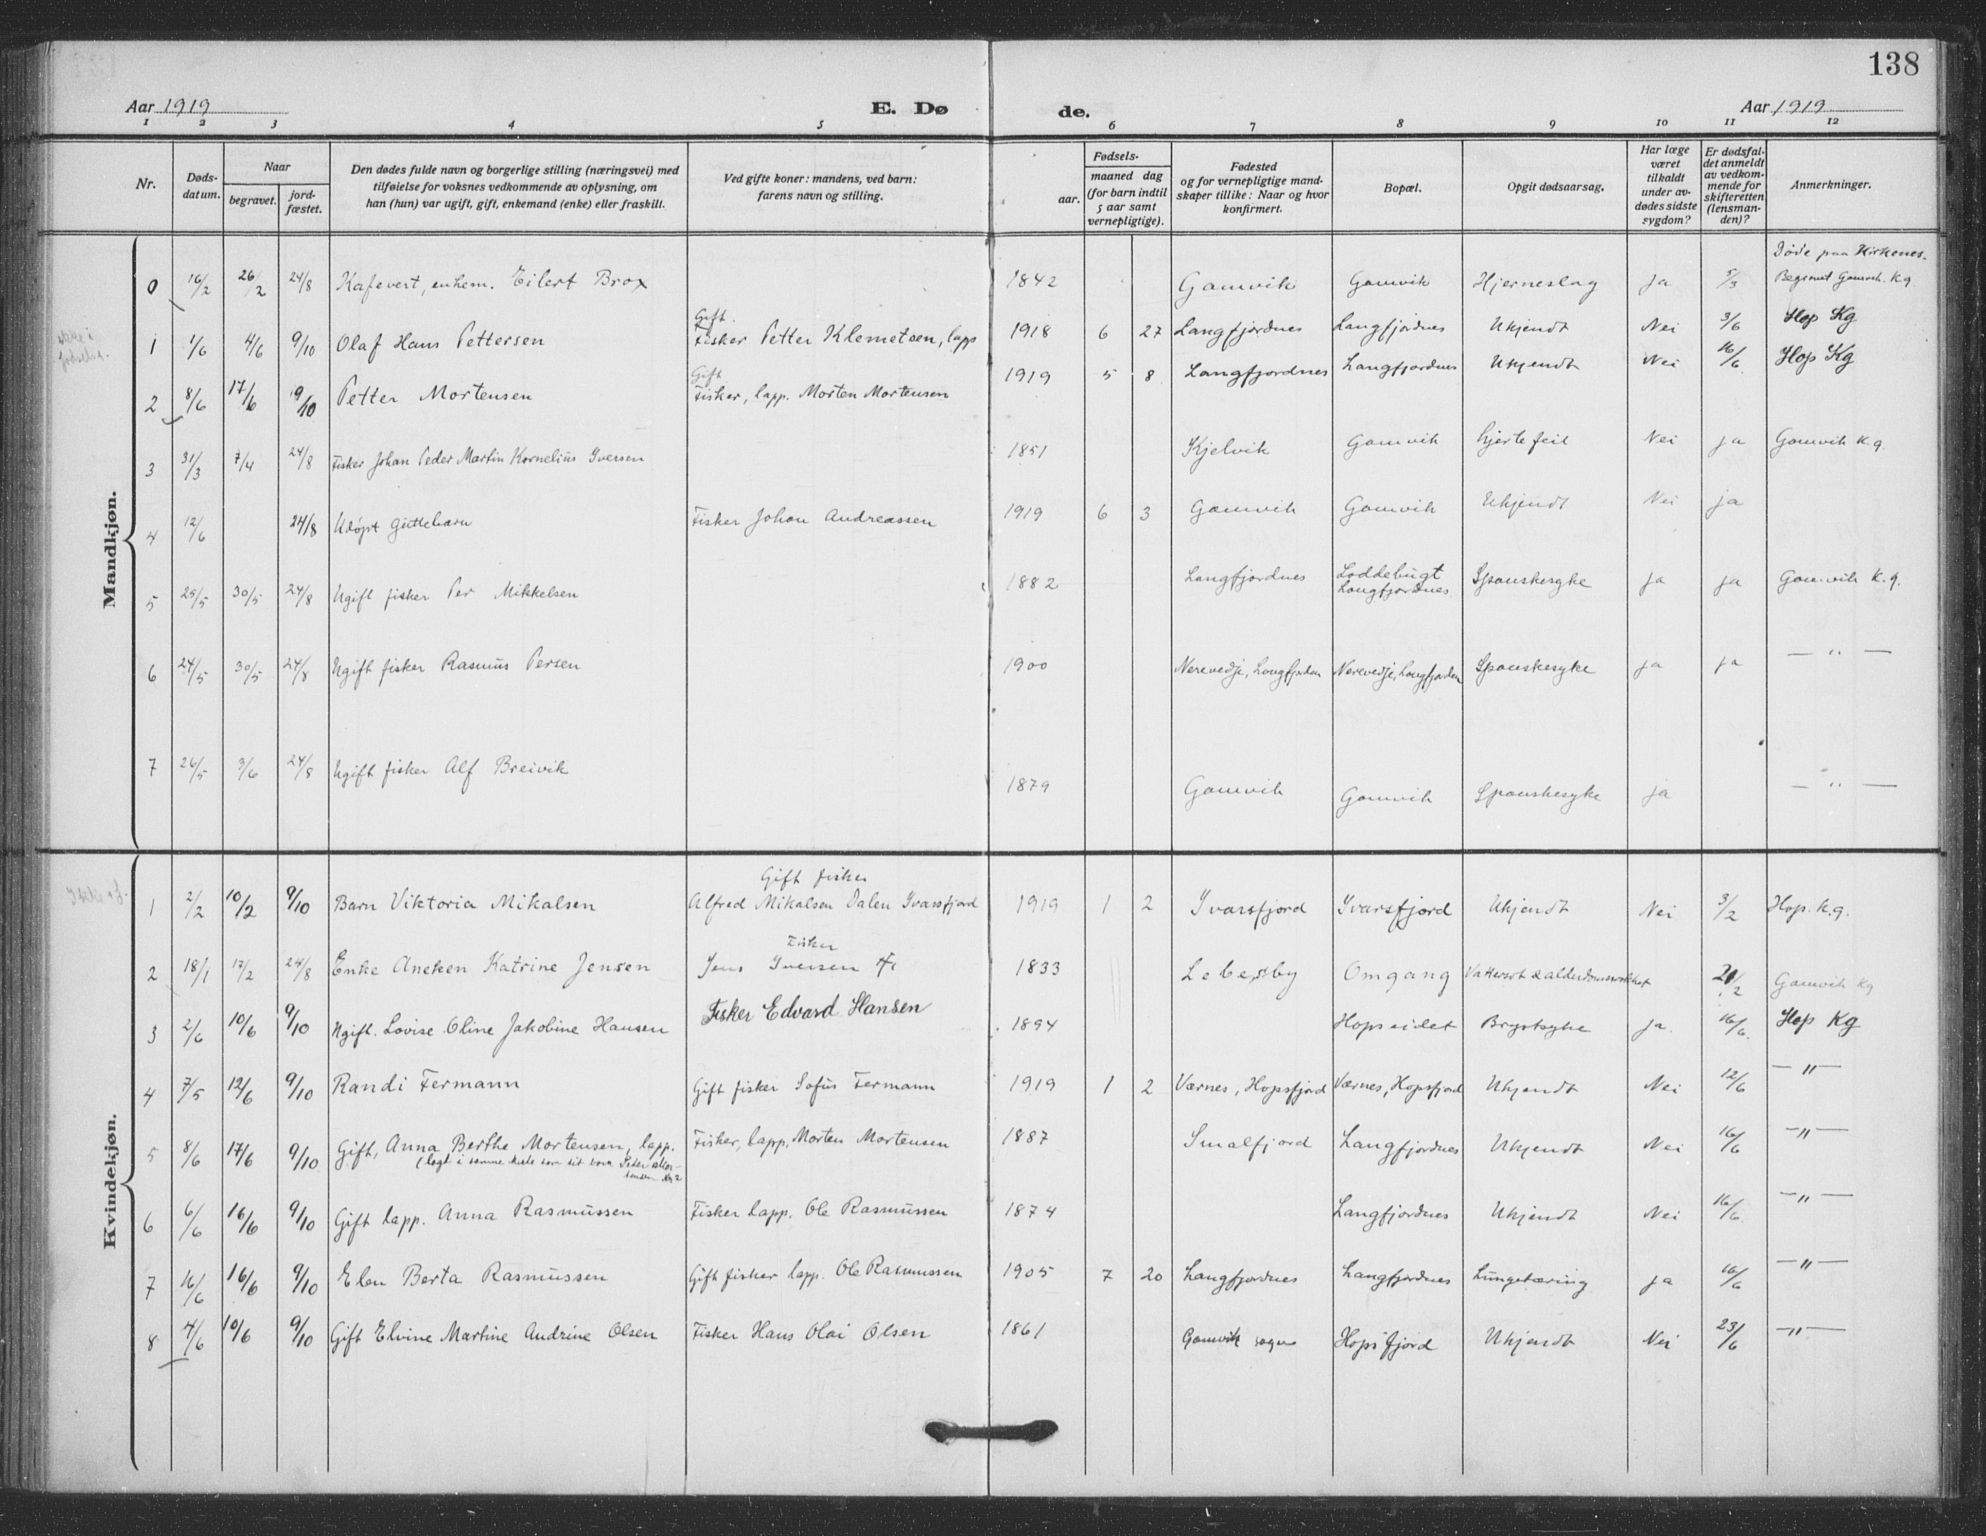 138
Aar 1919 E. Dø de. Aar 1919
1 2 3 4 5 6 7 8 9 10 11 12
Nr.
Døds-
datum.
Naar
begravet.
jord-
fæstet.
Den dødes fulde navn og borgerlige stilling (næringsvei) med
tilføielse for voksnes vedkommende av oplysning, om
han (hun) var ugift, gift, enkemand (enke) eller fraskilt.
Ved gifte koner: mandens, ved barn:
farens navn og stilling.
Fødsels-
aar.
maaned dag
(for barn indtil
5 aar samt
vernepligtige).
Fødested
og for vernepligtige mand-
skaper tillike: Naar og hvor
konfirmert.
Bopæl.
Opgit dødsaarsag.
Har læge
været
tilkaldt
under av-
dødes sidste
sygdom?
Er dødsfal-
det anmeldt
av vedkom-
mende for
skifteretten
(lensman-
den)?
Anmerkninger.
Mandkjøn.
Døde paa Kirkenes.
0 16/2 26/2 24/8 Kafevert, enkem. Eilert Brox 1842 Gamvik Gamvik Hjerneslag ja 5/3 Begravet Gamvik kg.
Gift.
1 1/6 4/6 9/10 Olaf Hans Pettersen Fisker Petter Klemetsen, lapp 1918 6 27 Langfjordnes Langfjordnes Ukjendt Nei 3/6 Hop Kg
Gift
2 8/6 17/6 9/10 Petter Mortensen Fisker, lapp. Morten Mortensen 1919 5 8 Langfjordnes Langfjordnes Ukjendt Nei 16/6 Hop Kg
3 31/3 7/4 24/8 Fisker Johan Peder Martin Kornelius Iversen 1851 Kjelvik Gamvik hjertefeil Nei ja Gamvik k.g.
4 12/6 24/8 Udøpt guttebarn Fisker Johan Andreassen 1919 6 3 Gamvik Gamvik Ukjendt Nei ja
5 25/5 30/5 24/8 Ugift fisker Per Mikkelsen 1882 Langfjordnes Loddebugt Spanskesyke ja ja Gamvik k.g.
Langfjordnes
6 24/5 30/5 24/8 Ugift fisker Rasmus Persen 1900 Nerevedje, Langfjorden Nerevedje, Langfjorden Spanskesyke ja ja — " —
7 26/5 3/6 24/8 Ugift fisker Alf Breivik 1879 Gamvik Gamvik Spanskesyke ja — " —
Kvindekjøn.
Gift fisker
1 2/2 10/2 9/10 Barn Viktoria Mikalsen Alfred Mikalsen Dalen Ivarsfjord 1919 1 2 Ivarsfjord Ivarsfjord Ukjendt Nei 3/2 Hop. k.g.
Fisker
2 18/1 17/2 24/8 Enke Aneken Katrine Jensen Jens Iversen 1833 Lebesby Omgang Vattersot & alderdomssvakhet 21/2 Gamvik Kg
3 2/6 10/6 9/10 Ugift. Lovise Oline Jakobine Hansen Fisker Edvard Hansen 1894 Hopseidet Brystsyke ja. 16/6 Hop Kg
4 7/5 12/6 9/10 Randi Fermann Gift fisker Sofus Fermann 1919 1 2 Værnes, Hopsfjord Værnes, Hopsfjord Ukjendt Nei 12/6 — " —
5 8/6 17/6 9/10 Gift, Anna Berthe Mortensen, lapp. Fisker, lapp, Morten Mortensen 1887 Smalfjord Langfjordnes Ukjendt Nei 16/6 — " —
(lagt i samme kiste som sit barn Peter Mor-
tensen No 2
6 6/6 16/6 9/10 Gift lapp. Anna Rasmussen Fisker lapp. Ole Rasmussen 1874 Langfjordnes Ukjendt Nei 16/6 — " —
7 16/6 16/6 9/10 Elen Berta Rasmussen Gift fisker lapp. Ole Rasmussen 1905 7 20 Langfjordnes Langfjordnes Lungetæring ja 16/6 — " —
8 4/6 10/6 9/10 Gift Elvine Martine Andrine Olsen Fisker Hans Olai Olsen 1861 Gamvik sogn Hopsfjord Ukjendt Nei 23/6 — " —